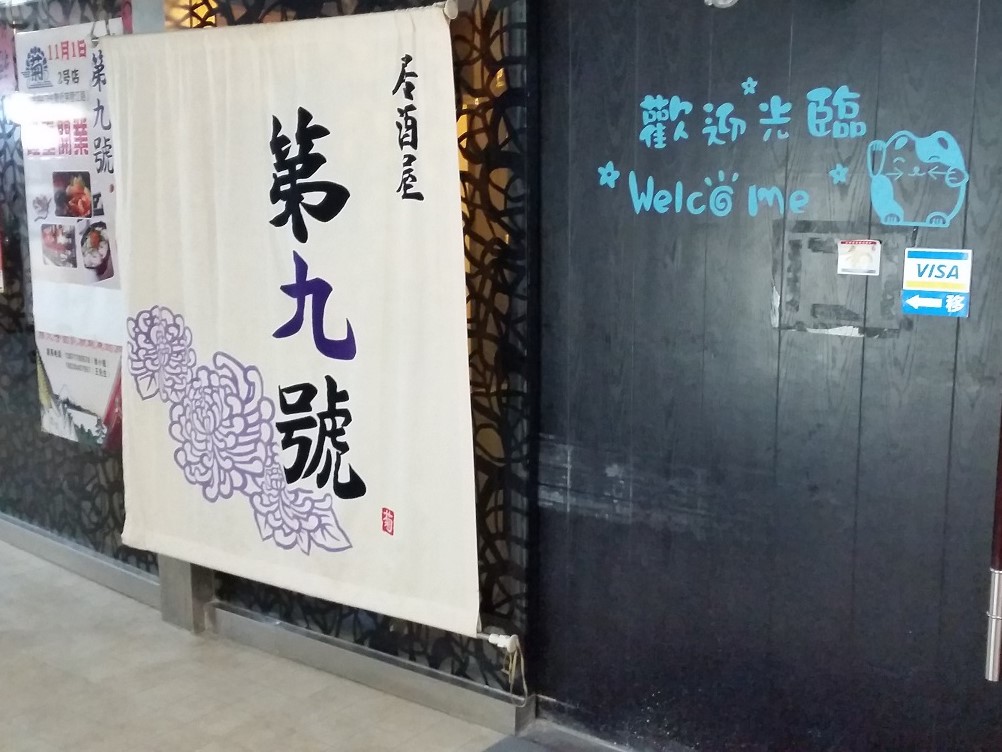 11月1日
2号店
開業
第九號
居酒屋
第九號
菊
歡迎光臨
Welcome
VISA
移